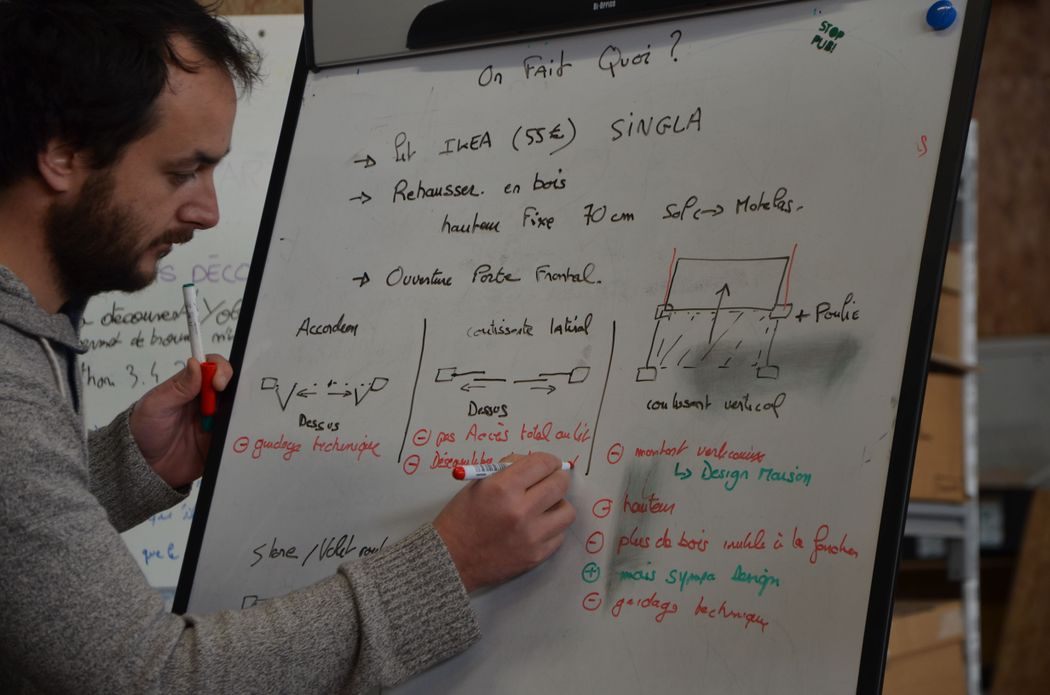 BI-OFFICE
STOP
PUB!
On Fait Quoi ?
→ Lit IKEA (55€) SINGLA
→ Rehausser. en bois
hauteur Fixe 70 cm Sol → Matelas.
→ Ouverture Porte Frontal.
Accordeon
coulissante latéral
+ Poulie
Dessus
Dessos
coulissant vertical
⊖ guidage technique
⊖ pas Accès total au lit
⊖
⊖ montant verticaux
↳ Design Maison
⊖ hauteur
⊖ plus de bois inutile à la fonction
⊕ mais sympa Design
⊖ guidage technique
Store / Volet
DÉCO
découvert
3.4
que le